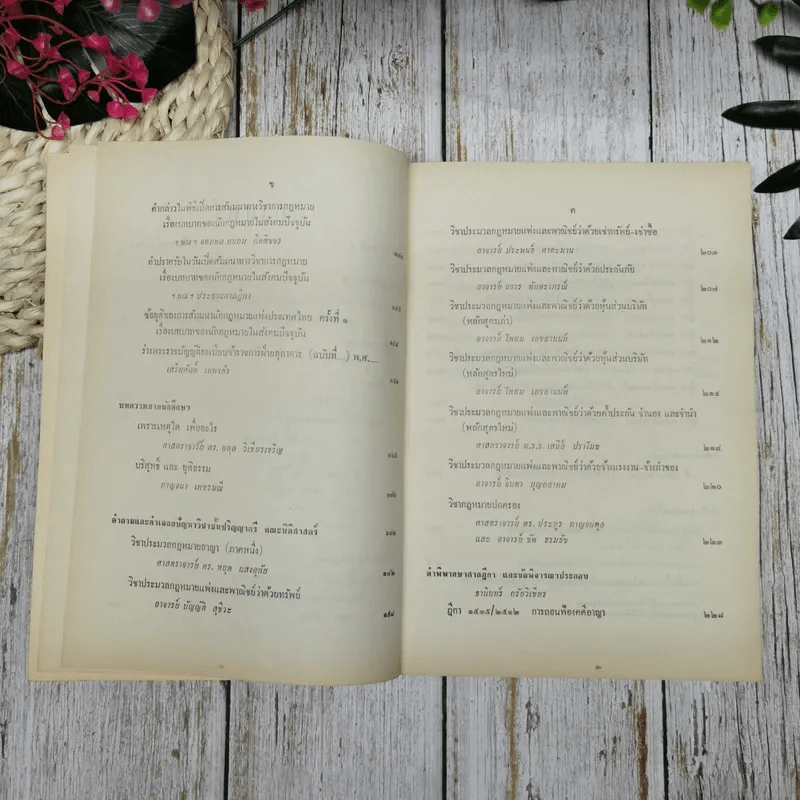 ข
คำกล่าวในพิธีเปิดการสัมมนาทางวิชาการกฎหมาย
เรื่องบทบาทของนักกฎหมายในสังคมปัจจุบัน
ฯพณฯ จอมพล ถนอม กิตติขจร
คำปราศรัยในวันเปิดสัมมนาทางวิชาการกฎหมาย
เรื่องบทบาทของนักกฎหมายในสังคมปัจจุบัน
ฯพณฯ ประธานศาลฎีกา
ข้อยุติของการสัมมนานักกฎหมายแห่งประเทศไทย ครั้งที่ ๑
เรื่องบทบาทของนักกฎหมายในสังคมปัจจุบัน
ร่างพระราชบัญญัติระเบียบข้าราชการฝ่ายตุลาการ (ฉบับที่....) พ.ศ.....
เสริมศักดิ์ เทพาคำ
บทความภาคนักศึกษา
เพราะเหตุใด เพื่ออะไร
ศาสตราจารย์ ดร. อดุล วิเชียรเจริญ
บริสุทธิ์ และ ยุติธรรม
กาญจนา
คำถามและคำเฉลยปัญหาวิชาชั้นปริญญาตรี คณะนิติศาสตร์
วิชาประมวลกฎหมายอาญา (ภาคหนึ่ง)
ศาสตราจารย์ ดร. หยุด แสงอุทัย
วิชาประมวลกฎหมายแพ่งและพาณิชย์ว่าด้วยทรัพย์
อาจารย์ บัญญัติ สุชีวะ
ค
วิชาประมวลกฎหมายแพ่งและพาณิชย์ว่าด้วยเช่าทรัพย์-เช่าซื้อ
อาจารย์ ประพนธ์ ศาตะมาน ๒๐๓
วิชาประมวลกฎหมายแพ่งและพาณิชย์ว่าด้วยประกันภัย
อาจารย์ ถาวร ๒๐๗
วิชาประมวลกฎหมายแพ่งและพาณิชย์ว่าด้วยหุ้นส่วนบริษัท
(หลักสูตรเก่า)
อาจารย์ โพยม เลขยานนท์ ๒๑๒
วิชาประมวลกฎหมายแพ่งและพาณิชย์ว่าด้วยหุ้นส่วนบริษัท
(หลักสูตรใหม่)
อาจารย์ โพยม เลขยานนท์ ๒๑๕
วิชาประมวลกฎหมายแพ่งและพาณิชย์ว่าด้วยค้ำประกัน จำนอง และจำนำ
(หลักสูตรใหม่)
ศาสตราจารย์ ม.ร.ว. เสนีย์ ปราโมช ๒๑๘
วิชาประมวลกฎหมายแพ่งและพาณิชย์ว่าด้วยจ้างแรงงาน-จ้างทำของ
อาจารย์ จินตา บุณยอาคม ๒๒๐
วิชากฎหมายปกครอง
ศาสตราจารย์ ดร. ประยูร กาญจนดุล
และ อาจารย์ ชัพ ธรรมธัช ๒๒๓
คำพิพากษาศาลฎีกา และข้อพิจารณาประกอบ
ธานินทร์ กรัยวิเชียร
ฎีกา ๑๕๓๕/๒๕๑๒ การถอนฟ้องคดีอาญา ๒๒๘